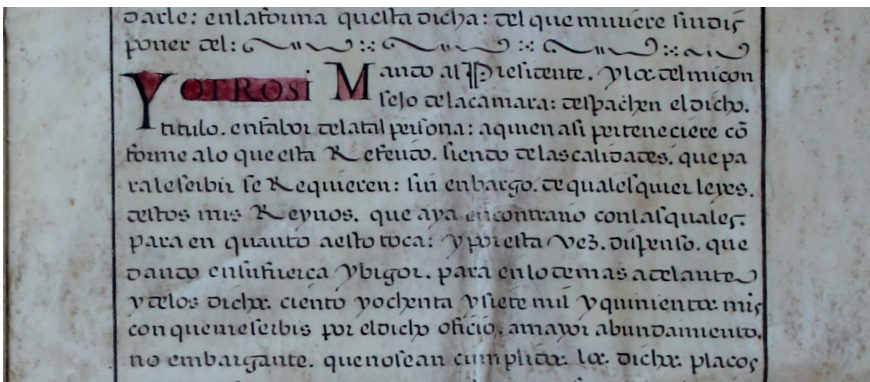 darle: en la forma questa dicha: del que muriere sin dis
poner del:
Y OTROSi Mando al Presidente. y los del mi con
sejo de la camara: despachen el dicho.
titulo. en fabor de la tal persona: a quien asi perteneciere cō
forme a lo que esta Referido. siendo de las calidades. que pa
ra le seibir se Requieren: sin enbargo. de qualesquier leyes.
destos mis Reynos. que aya en contrario con las quales.
para en quanto a esto toca: y por esta vez. dispenso. que
dando en su fuerça y bigor. para en lo demas adelante
y de los dichos. ciento y ochenta y siete mil y quinientos mrs
con que me serbis por el dicho oficio. a mayor abundamiento.
no embargante. que no sean cumplidos los dichos. placos